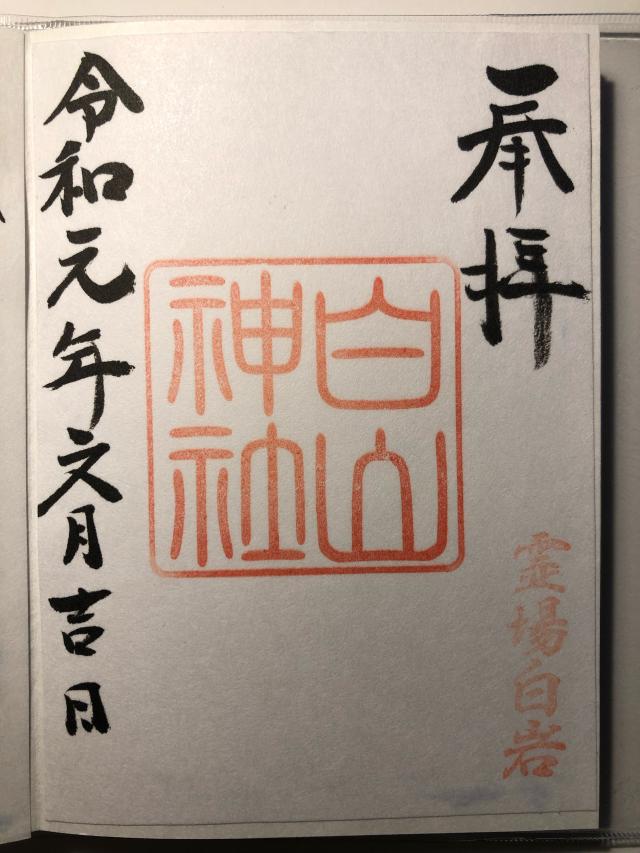 奉拝
白山
神社
霊場白岩
令和元年文月吉日